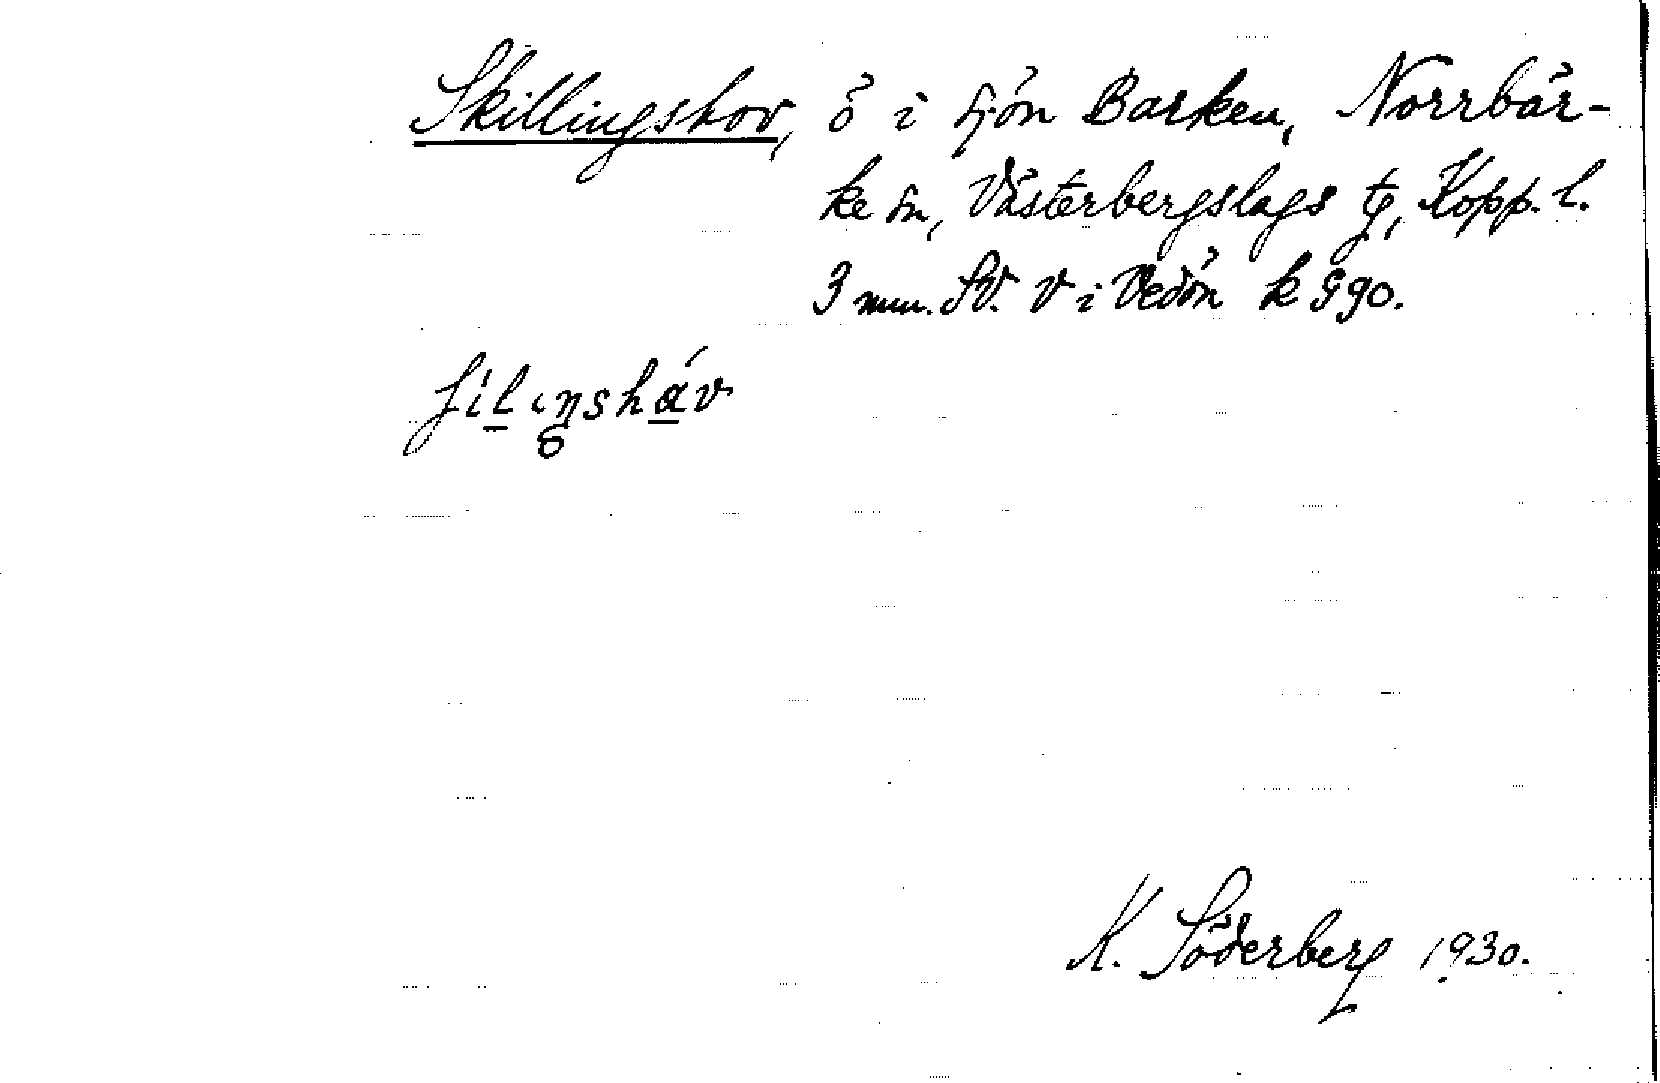 Skillingshov, ö i sjön Barken, Norrbär-
ke sn, Västerbergslags tg, Kopp. l.
3 mm. SV. v i Vedön k 590.
ʃilıŋsháv
K. Söderberg 1930.